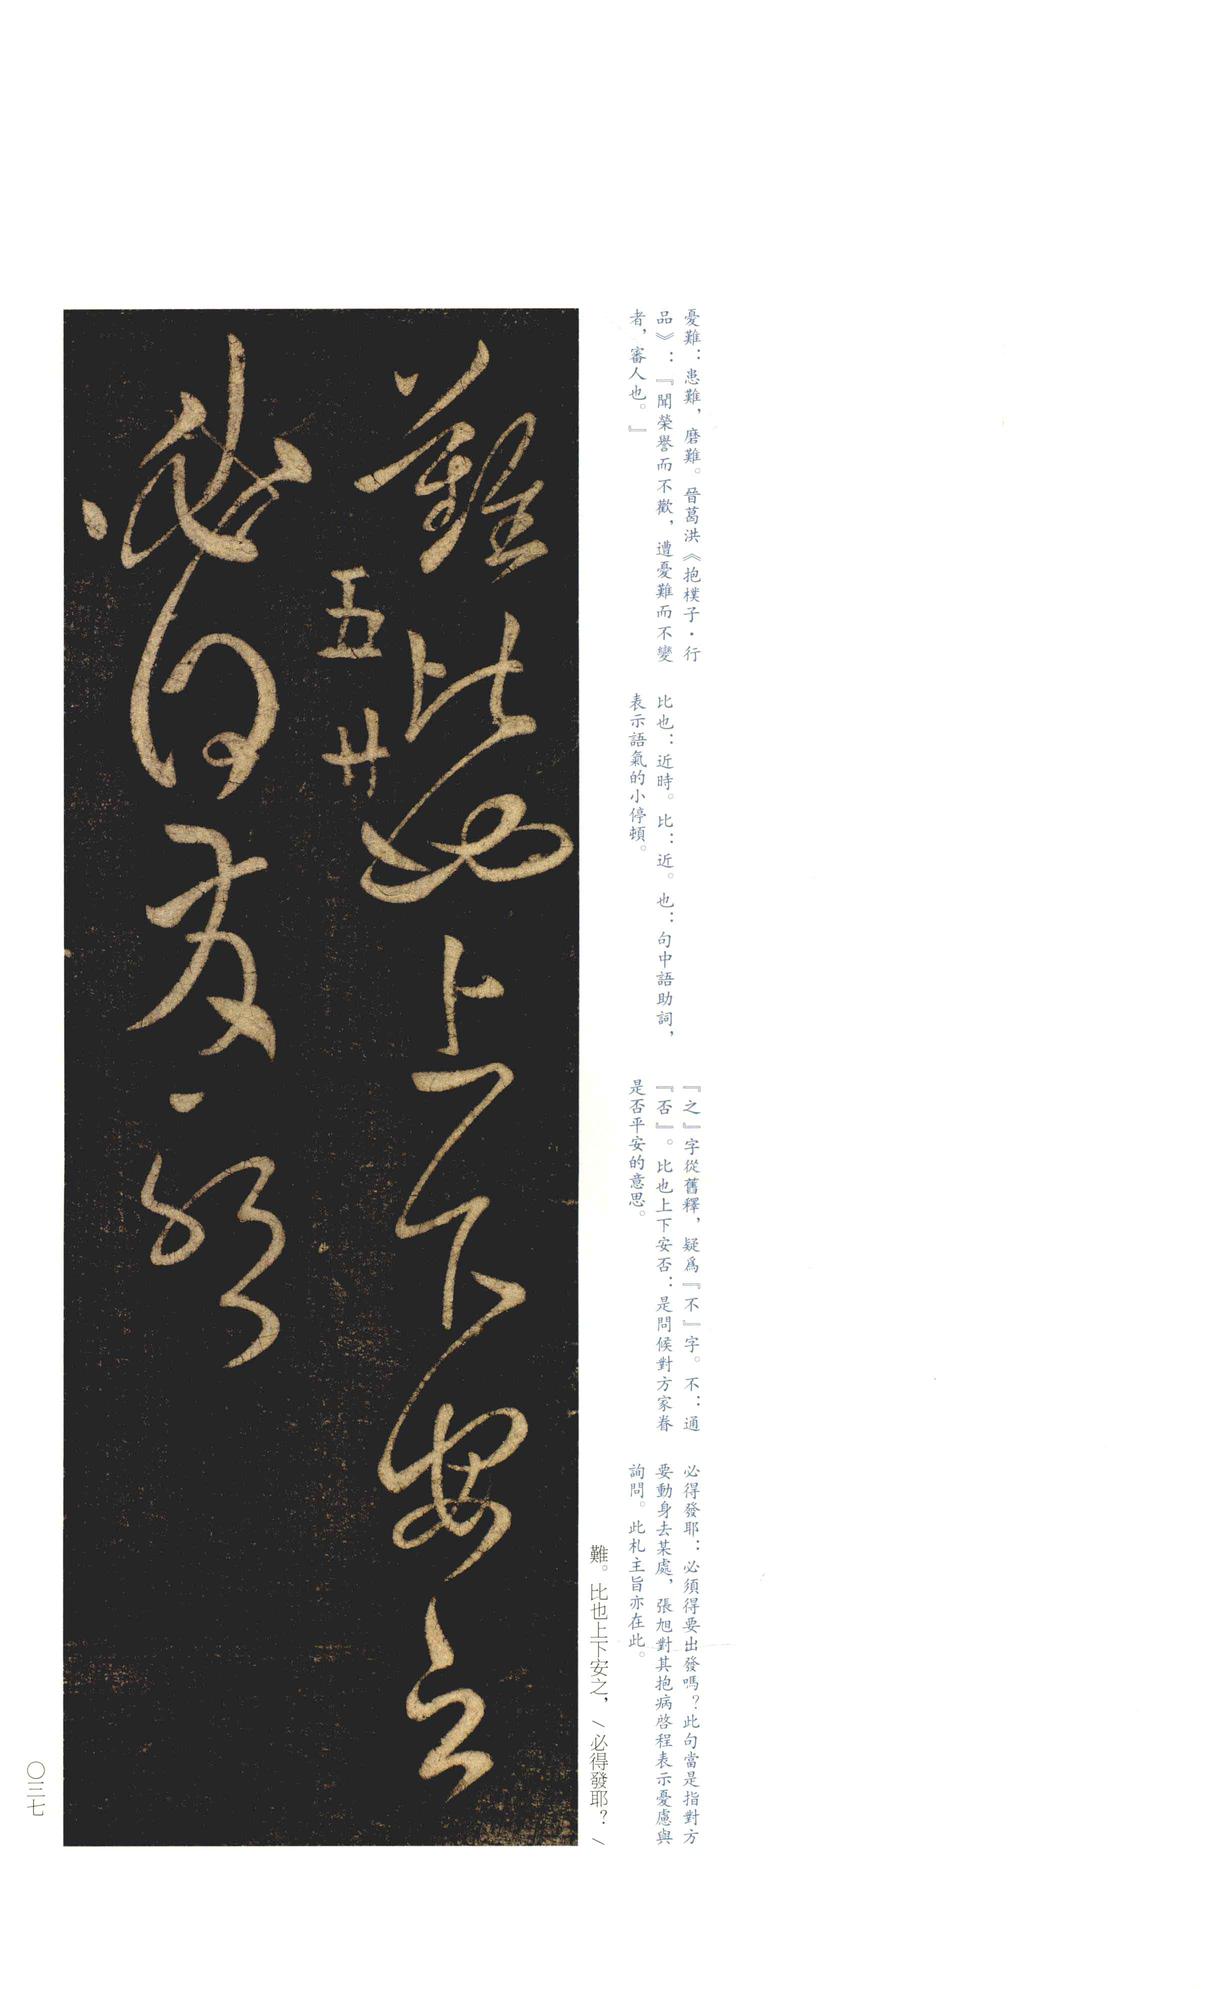 憂難：患難，磨難。晉葛洪《抱樸子·行
品》：『聞榮譽而不歡，遭憂難而不變
者，審人也。』
比也：近時。比：近。也：句中語助詞，
表示語氣的小停頓。
『之』字從舊釋，疑爲『不』字。不：通
『否』。比也上下安否：是問候對方家眷
是否平安的意思。
必得發耶：必須得要出發嗎？此句當是指對方
要動身去某處，張旭對其抱病啓程表示憂慮與
詢問。此札主旨亦在此。
難。比也上下安之，/必得發耶？/
難比也上下安之
五 廿
必得發耶
〇三七